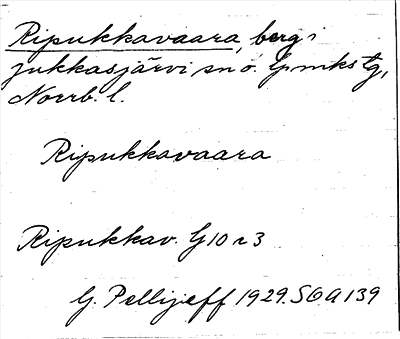 Ripukkavaara, berg i
Jukkasjärvi sn o. lpmks tg,
Norrb. l.
Ripukkavaara
Ripukkav. G10 r 3
G. Pellijeff 1929. SOA 139